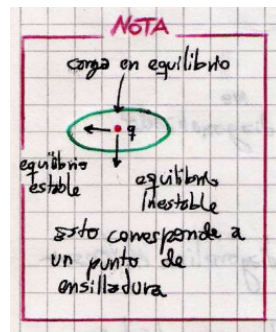 NOTA
carga en equilibrio
q
equilibrio
estable
equilibrio
inestable
Esto corresponde a
un punto de
ensilladura